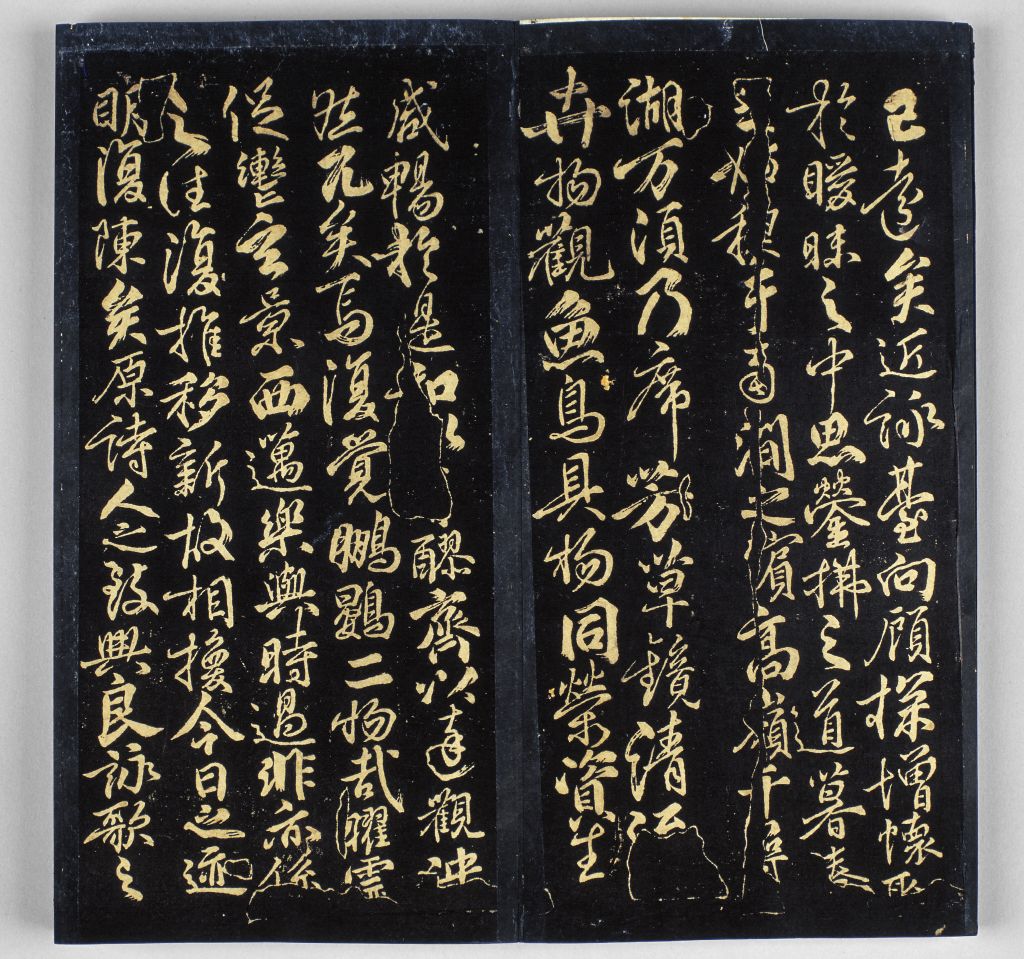 已遠矣近詠臺向顧探增懷
於曖昧之中思瑩拂之道暮春
之始禊于南澗之濱高嶺千尋
湖万頃乃席芳草鏡清流
卉物觀魚鳥具物同榮資生
咸暢於是和以醪齊以達觀泱
然兀矣焉復覺鵬鷃二物哉曜靈
促轡玄景西邁樂與時過悲亦係
之往復推移新故相換今日之迹
明復陳矣原詩人之致興良詠歌之